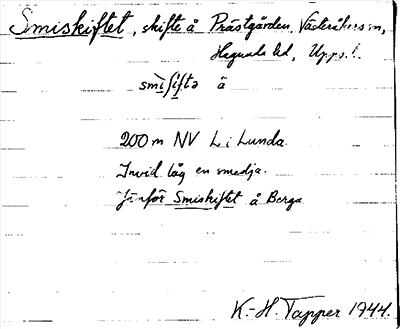 Smiskiftet, skifte å Prästgården, Väderåkers sn,
Hagunda hd, Uppl.
smìʃiftə ä
200 m NV L i Lunda.
Invid låg en smedja.
Jämför Smiskiftet å Berga
K.-H. Tapper 1944.